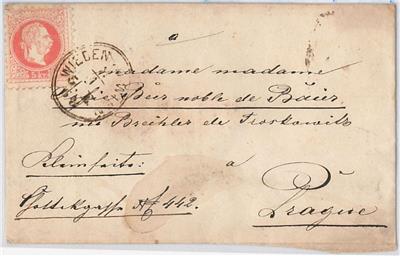 WIEDEN
a
madame madame
Bär noble de Bäier
née Brechler de Troskowitz
Kleinseite:
a
gasse № 442.
Prague